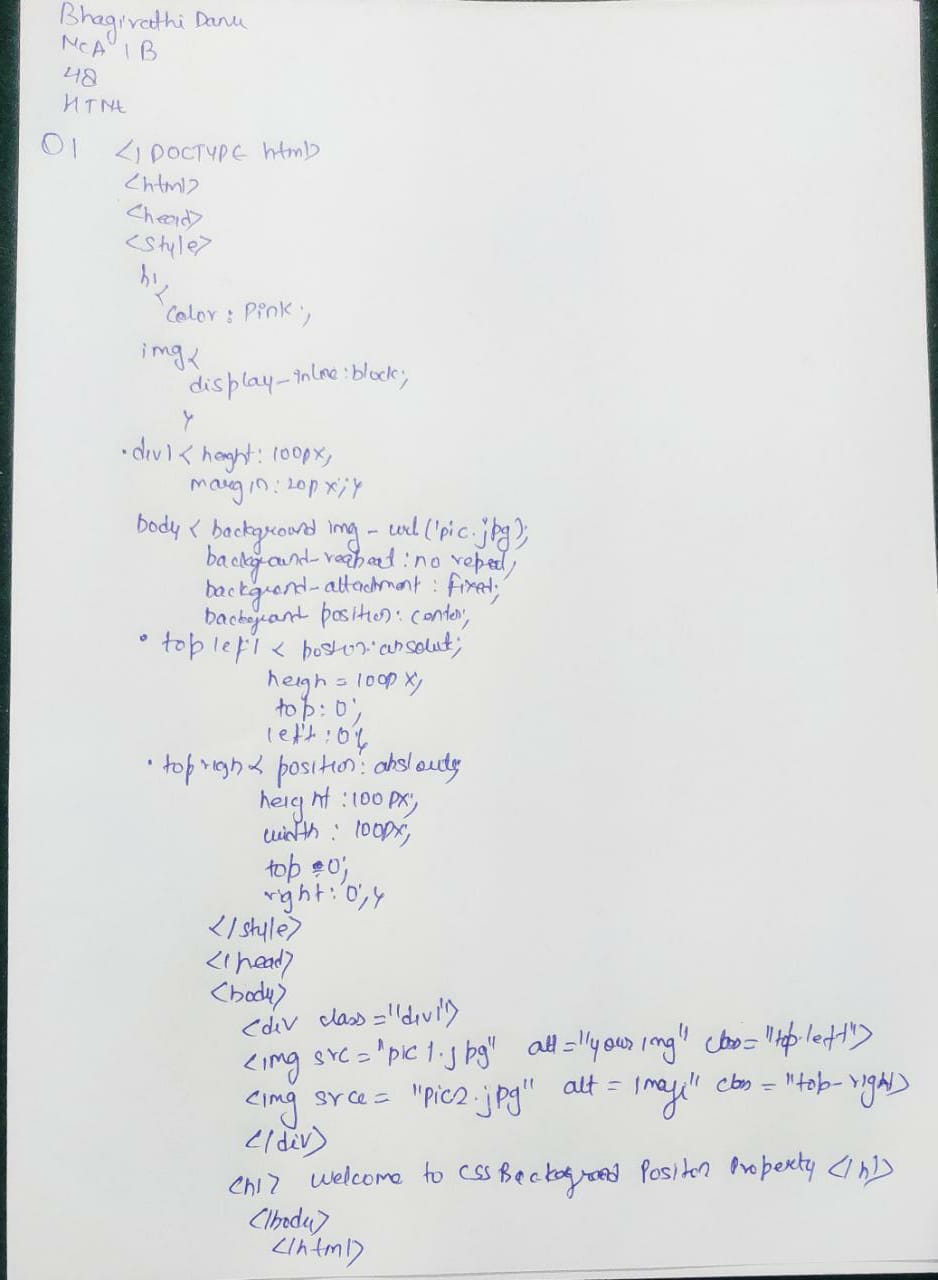 Bhagirathi Danu
MCA 1 B
48
HTML
01 <! DOCTYPE html>
<html>
<head>
<style>
h1
{
color : Pink ;
img {
display-inline:block;
}
.div1 { height: 100px;
margin: 20px; }
body { background img - url ('pic.jpg');
background-repeat : no repeat;
background-attachment : fixed;
background position : center;
. top left { position: absolut;
heigh = 100p x;
top: 0;
left : 0 }
. top righ { position: absloute;
height : 100 px;
width : 100px;
top : 0;
right : 0; }
</style>
</head>
<body>
<div class ="div1">
<img src = "pic 1.jpg" alt ="your img" class = "top-left">
<img srce = "pic2.jpg" alt = image" class = "top-right>
</div>
<h1> Welcome to CSS Background Position Property </h1>
</body>
</html>